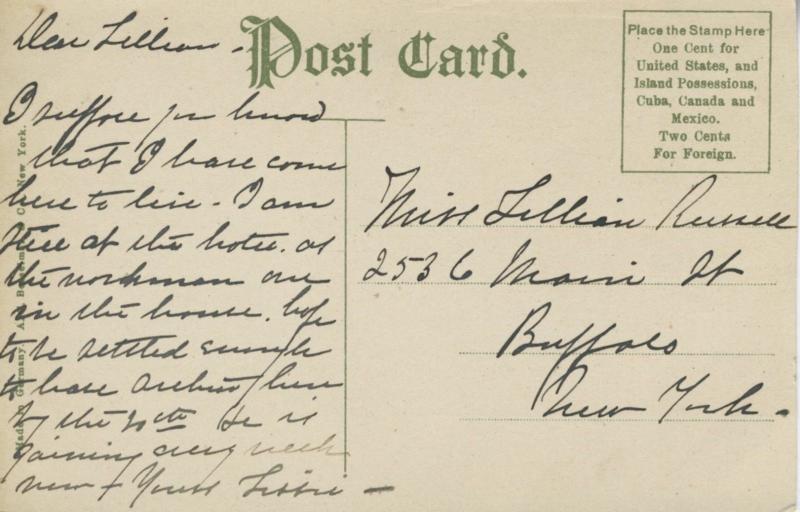 Dear Lillian -
Post Card.
Place the Stamp Here
One Cent for
United States, and
Island Possessions,
Cuba, Canada and
Mexico.
Two Cents
For Foreign.
I suppose you know
that I have come
here to live - I am
still at the hotel. as
the workmen are
in the house. hope
to be settled enough
to have here
by the 20th He is
gaining every week
now - Yours Libbie -
Miss Lillian Russell
2536 Main St
Buffalo
New York -
Made in Germany. New York.